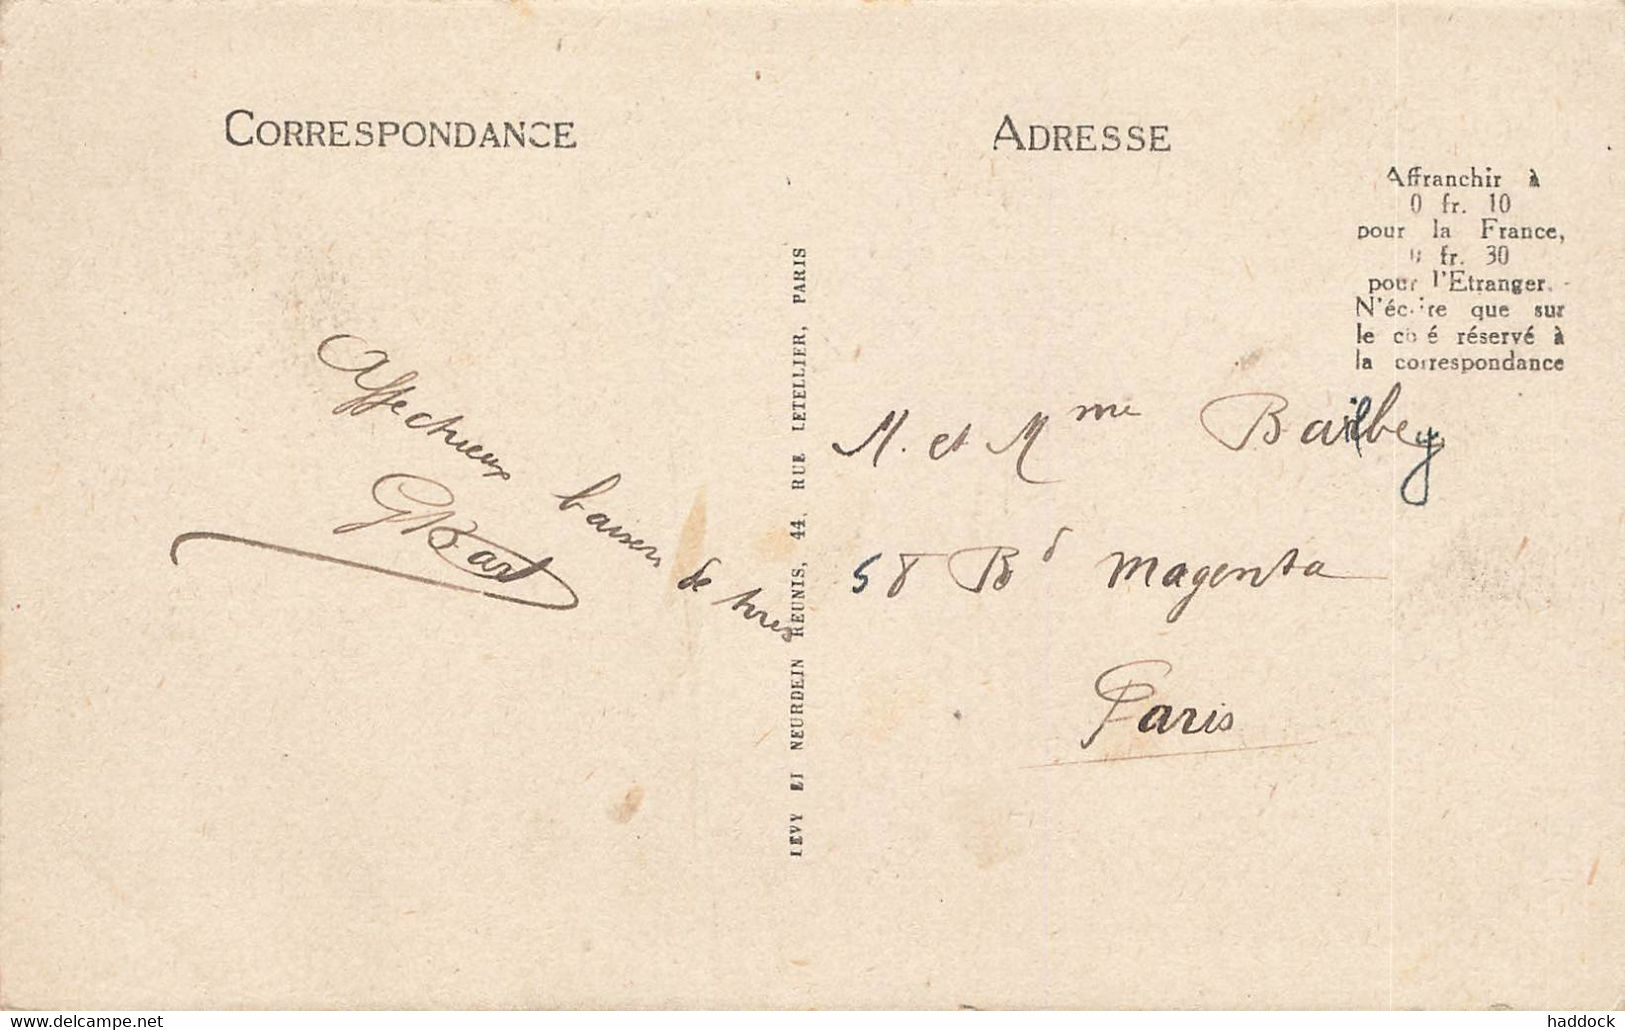 CORRESPONDANCE
Affectueux baisers de tous
GBart
LEVY ET NEURDEIN REUNIS, 44, RUE LETELLIER, PARIS
ADRESSE
Affranchir à
0 fr. 10
pour la France,
0 fr. 30
pour l'Etranger.
N'écrire que sur
le côté réservé à
la correspondance
M. et Mme Bailbey
58 Bd Magenta
Paris
www.delcampe.net
haddock